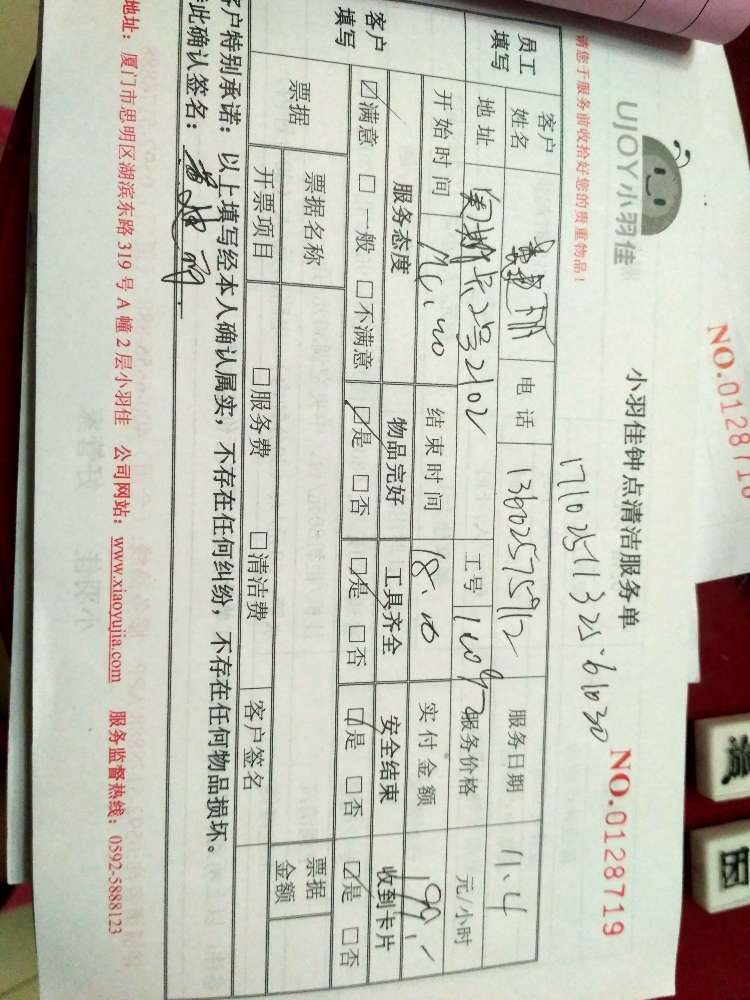 NO.0128710
UJOY小羽佳
小羽佳钟点清洁服务单
NO.0128719
请您于服务前收拾好您的贵重物品！
17102511325-61030
员工填写
客户姓名
电话 13602575912
服务日期 11.4
地址 2号2102
工号
服务价格 元/小时
开始时间
结束时间 18.00
实付金额 199.
客户填写
服务态度 物品完好 工具齐全 安全结束 收到卡片
☑满意 □一般 □不满意 ☑是 □否 ☑是 □否 ☑是 □否 ☑是 □否
票据 票据名称 票据金额
开票项目 □服务费 □清洁费 客户签名
客户特别承诺：以上填写经本人确认属实，不存在任何纠纷，不存在任何物品损坏。
特此确认签名：
地址：厦门市思明区湖滨东路 319 号 A 幢 2 层小羽佳 公司网站：www.xiaoyujia.com 服务监督热线：0592-5888123